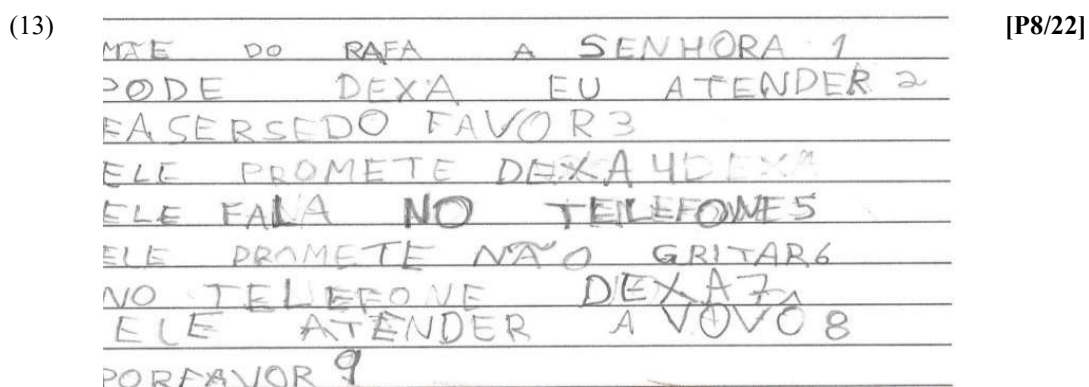 (13) [P8/22]
MÃE DO RAFA A SENHORA 1
PODE DEXA EU ATENDER 2
FASERSEDO FAVOR 3
ELE PROMETE DEXA 4 DEXA
ELE FALA NO TEILEFONE 5
ELE PROMETE NÃO GRITAR 6
NO TELEFONE DEXA 7
ELE ATENDER A VOVÔ 8
PORFAVOR 9